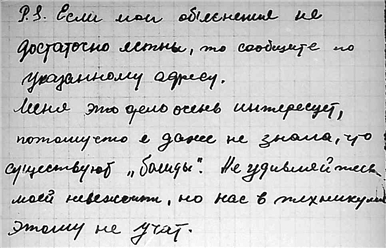 P.S. Если мои объяснения не
достаточно ясны, то сообщите по
указанному адресу.
Меня это дело очень интересует,
потому что я даже не знала, что
существуют „болиды“. Не удивляйтесь
моей невежест, но нас в техникуме
этому не учат.